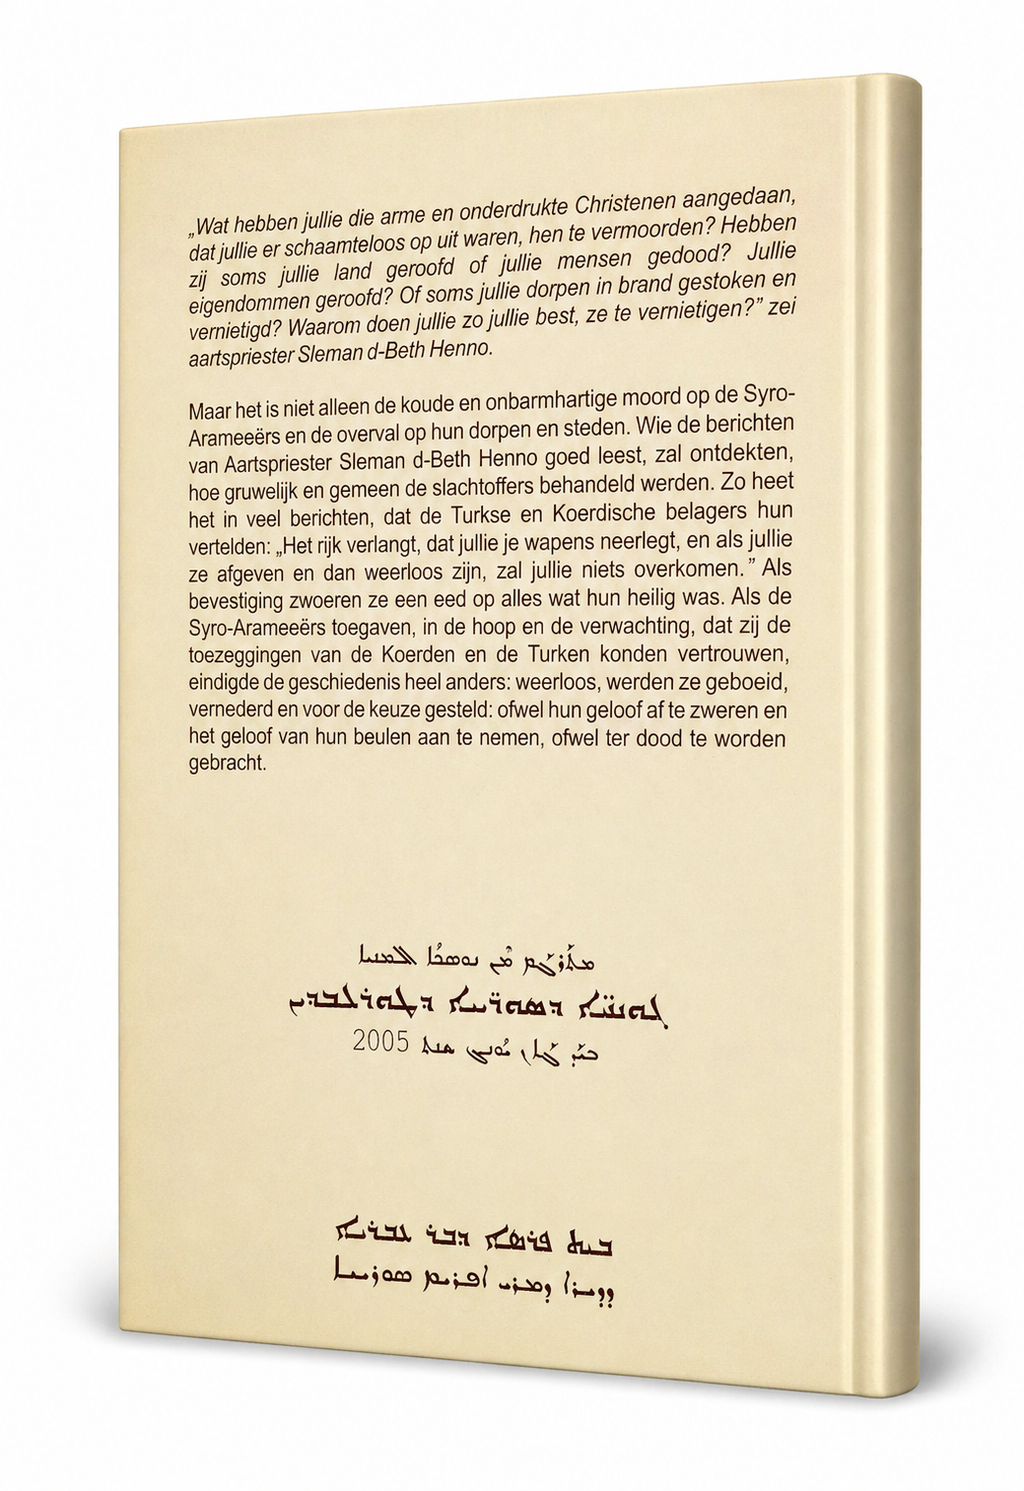 „Wat hebben jullie die arme en onderdrukte Christenen aangedaan,
dat jullie er schaamteloos op uit waren, hen te vermoorden? Hebben
zij soms jullie land geroofd of jullie mensen gedood? Jullie
eigendommen geroofd? Of soms jullie dorpen in brand gestoken en
vernietigd? Waarom doen jullie zo jullie best, ze te vernietigen?” zei
aartspriester Sleman d-Beth Henno.
Maar het is niet alleen de koude en onbarmhartige moord op de Syro-
Arameeërs en de overval op hun dorpen en steden. Wie de berichten
van Aartspriester Sleman d-Beth Henno goed leest, zal ontdekten,
hoe gruwelijk en gemeen de slachtoffers behandeld werden. Zo heet
het in veel berichten, dat de Turkse en Koerdische belagers hun
vertelden: „Het rijk verlangt, dat jullie je wapens neerlegt, en als jullie
ze afgeven en dan weerloos zijn, zal jullie niets overkomen.” Als
bevestiging zwoeren ze een eed op alles wat hun heilig was. Als de
Syro-Arameeërs toegaven, in de hoop en de verwachting, dat zij de
toezeggingen van de Koerden en de Turken konden vertrouwen,
eindigde de geschiedenis heel anders: weerloos, werden ze geboeid,
vernederd en voor de keuze gesteld: ofwel hun geloof af te zweren en
het geloof van hun beulen aan te nemen, ofwel ter dood te worden
gebracht.
ܡܢ
ܕܣܘܪ̈ܝܝܐ
ܫܢܬ 2005
ܒܝܬ ܦܪܣܐ ܕܒܪ ܥܒܪܝܐ
ܕܕܝܪܐ ܕܡܪܝ ܐܦܪܝܡ ܣܘܪܝܝܐ